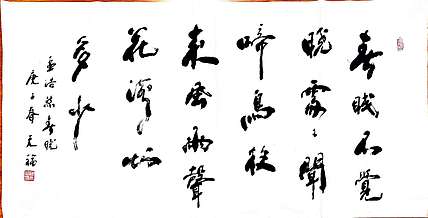 春眠不覺
曉處々聞
啼鳥夜
來風雨聲
花落知
多少
孟浩然春曉
庚子春